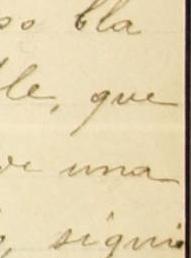 so bla
le, que
de una
, siguie